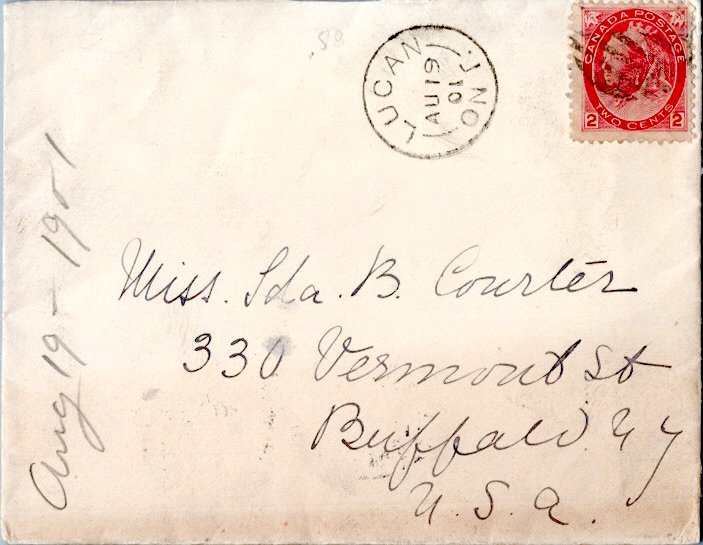 LUCAN
AU 19
01
ONT.
CANADA POSTAGE
TWO CENTS
2 2
Aug 19 - 1901
Miss. Ida. B. Courter
330 Vermont St
Buffalo. N Y
U. S. a.